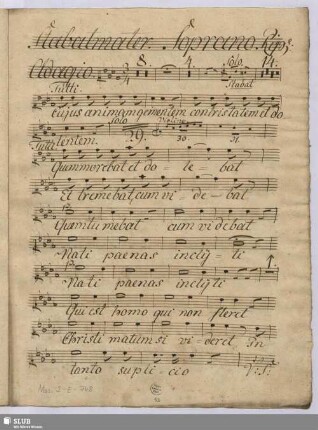 Stabat mater. Soprano. Rip:
Adagio. 8. 4. Solo. 14.
Tutti. Stabat
cujus animam gementem contristatem et do
Solo Violino
Tutti lentem. 29. 30 31
Quam morebat et do- le- bat
Et tremebat, cum vi- de- bat
Quam tumebat cum videbat
Nati paenas inclÿ- ti 1.
Nati paenas inclÿti
Qui est homo qui non fleret
Christi matum si vi- deret In
tanto suplicio V: S:
Mus. 3-E-768
SLUB